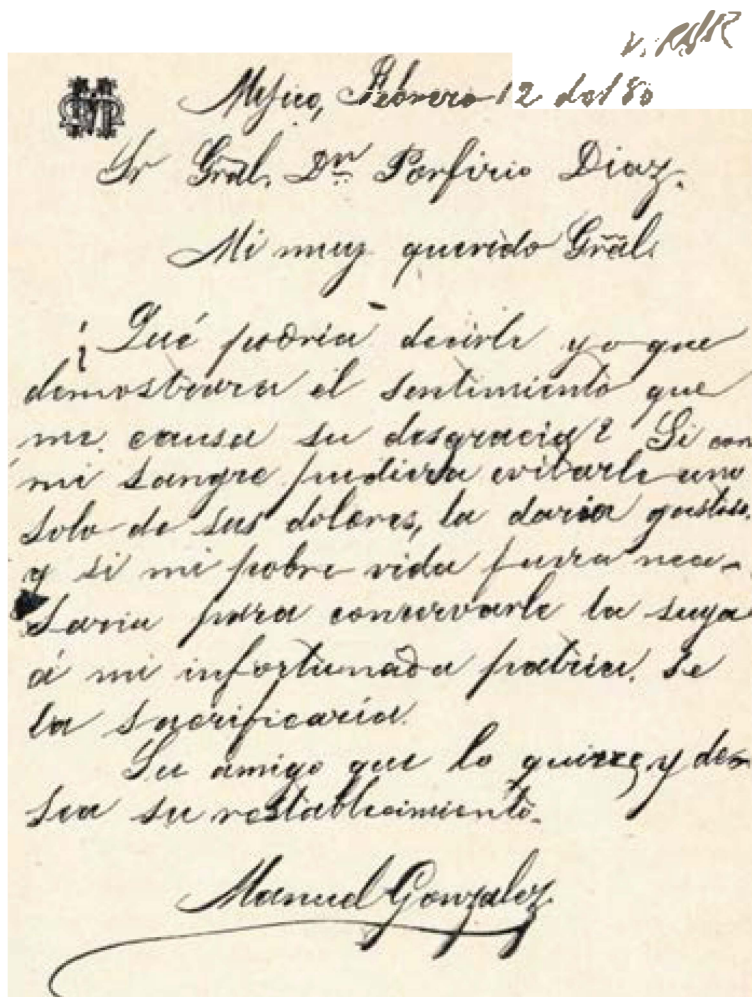 Mejico, Febrero 12 del 80
Sr Gral. Dn Porfirio Diaz.
Mi muy querido Gral.
¿Qué podria decirle yo que
demostrara el sentimiento que
me causa su desgracia? Si con
mi sangre pudiera evitarle uno
solo de sus dolores, la daria gustoso,
y si mi pobre vida fuera nece-
saria para conservarle la suya
á mi infortunada patria, se
la sacrificaría.
Su amigo que lo quiere y de-
sea su restablecimiento.
Manuel Gonzalez